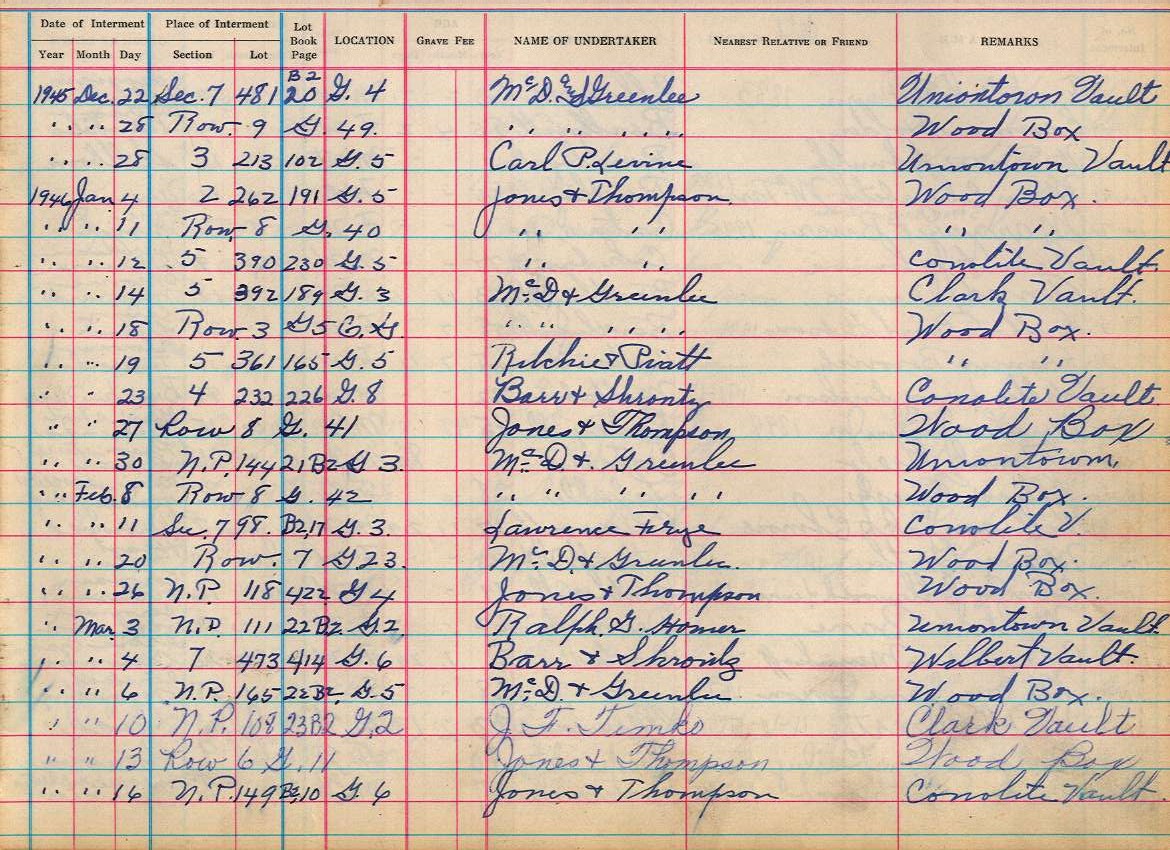 Date of Interment Place of Interment Lot Book Page LOCATION GRAVE FEE NAME OF UNDERTAKER NEAREST RELATIVE OR FRIEND REMARKS
Year Month Day Section Lot
1945 Dec. 22 Sec. 7 481 B2 20 G. 4 McD. & Greenlee Uniontown Vault
" " 28 Row. 9 G. 49. " " " " Wood Box
" " 28 3 213 102 G. 5 Carl P. Levine Uniontown Vault
1946 Jan 4 2 262 191 G. 5 Jones & Thompson. Wood Box.
" " 11 Row. 8 G. 40 " " " "
" " 12 5 390 230 G. 5 " " Conolite Vault.
" " 14 5 392 189 G. 3 McD & Greenlee Clark Vault.
" " 18 Row. 3 G5 " " " " Wood Box.
" " 19 5 361 165 G. 5 Ritchie & Piatt " "
" " 23 4 232 226 G. 8 Barr & Shrontz Conolite Vault
" " 27 Row 8 G. 41 Jones & Thompson Wood Box
" " 30 N.P. 144 21B2 G 3. McD. & Greenlee Uniontown.
" " Feb. 8 Row 8 G. 42 " " " " " Wood Box.
" " 11 Sec. 7 98. B2,17 G. 3. Lawrence Frye Conolite V.
" " 20 Row. 7 G.23. McD. & Greenlee. Wood Box.
" " 26 N.P. 118 422 G 4 Jones & Thompson Wood Box.
" Mar. 3 N.P. 111 22B2. G.2. Ralph. G. Homer Uniontown Vault.
" " 4 7 473 414 G. 6 Barr & Shrontz Wilbert Vault.
" " 6 N.P. 165 22B2 G.5 McD. & Greenlee. Wood Box.
" " 10 N.P. 108 23B2 G.2 J. F. Timko Clark Vault
" " 13 Row 6 G. 11 Jones & Thompson Wood Box
" " 16 N.P. 149 B2,10 G. 6 Jones & Thompson Conolite Vault.